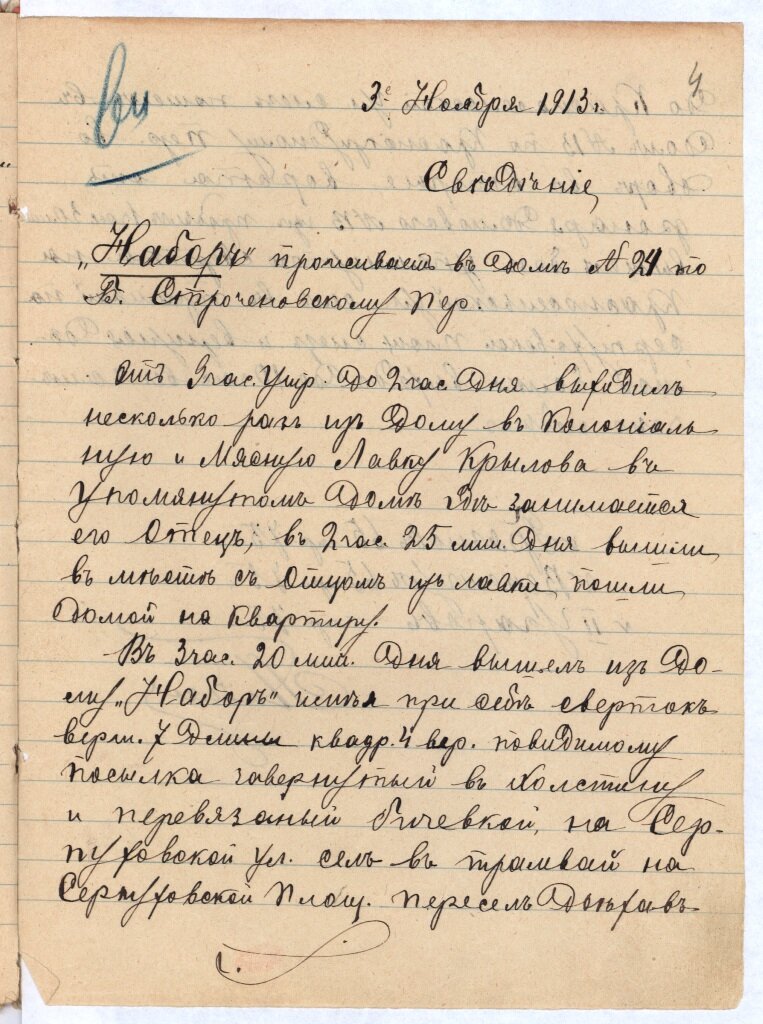 4
3е Ноября 1913 г.
Сведѣніе
„Наборъ" проживаетъ въ домѣ № 24 по
Б. Строченовскому пер.
Отъ 9 час. утр. до 2 час дня выходилъ
несколько разъ изъ дому въ Колоніаль
ную и Мясную Лавку Крылова въ
упомянутомъ домѣ гдѣ занимается
его Отецъ, въ 2 час. 25 мин. дня вышли
въ мѣстѣ съ Отцомъ изъ лавки пошли
домой на квартиру.
Въ 3 час. 20 мин. дня вышелъ изъ до-
му „Наборъ" имѣя при себѣ свертокъ
верш. 7 длины квадр. 4 вер. повидимому
посылка завернутый въ холстину
и перевязаный бичевкой, на Сер-
пуховской ул. селъ въ трамвай на
Серпуховской площ. переселъ доѣхавъ